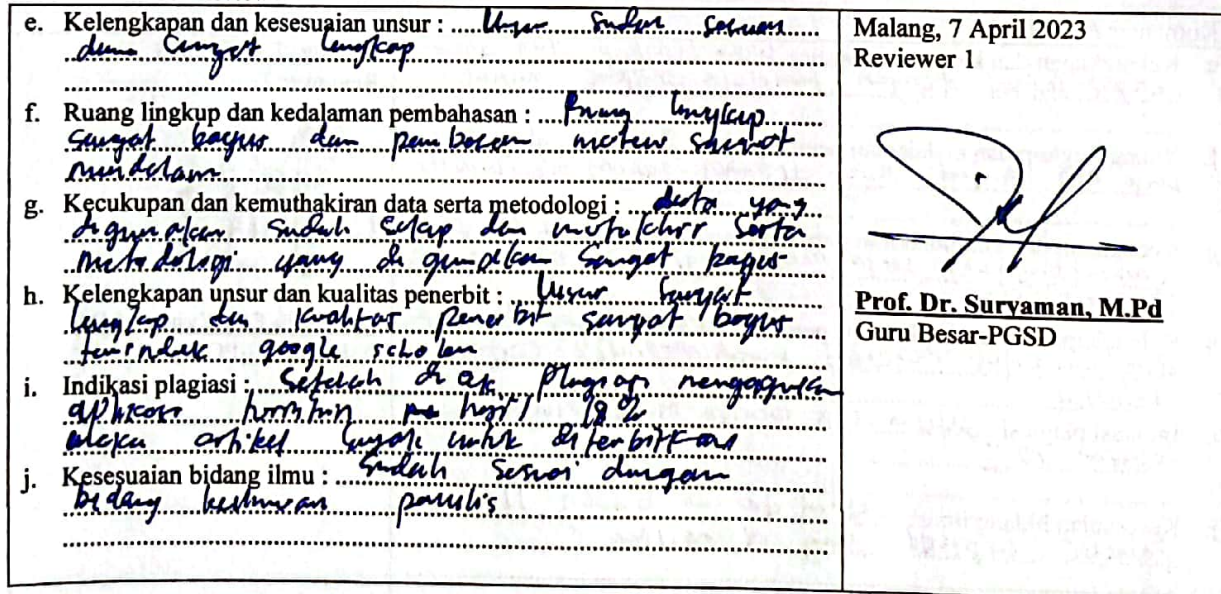 e. Kelengkapan dan kesesuaian unsur : Unsur sudah sesuai
dan sangat lengkap
f. Ruang lingkup dan kedalaman pembahasan : Ruang lingkup
sangat bagus dan materi sangat
mendalam
g. Kecukupan dan kemuthakiran data serta metodologi : data yang
digunakan sudah dan serta
metodologi yang digunakan sangat bagus
h. Kelengkapan unsur dan kualitas penerbit : Unsur sangat
lengkap dan kualitas penerbit sangat bagus
terindek google scholar
i. Indikasi plagiasi : Setelah di cek plagiasi
aplikasi turnitin 18%
maka artikel layak untuk diterbitkan
j. Kesesuaian bidang ilmu : Sudah sesuai dengan
bidang keilmuan penulis
Malang, 7 April 2023
Reviewer 1
Prof. Dr. Suryaman, M.Pd
Guru Besar-PGSD